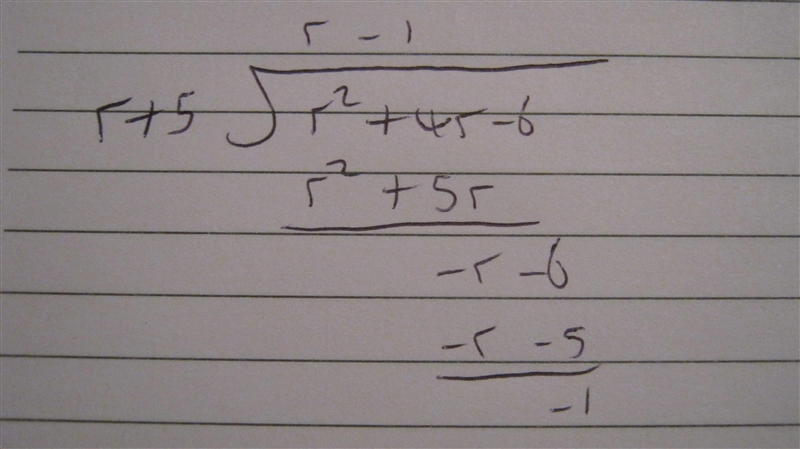 r - 1
r+5 r² + 4r - 6
r² + 5r
-r - 6
-r - 5
-1